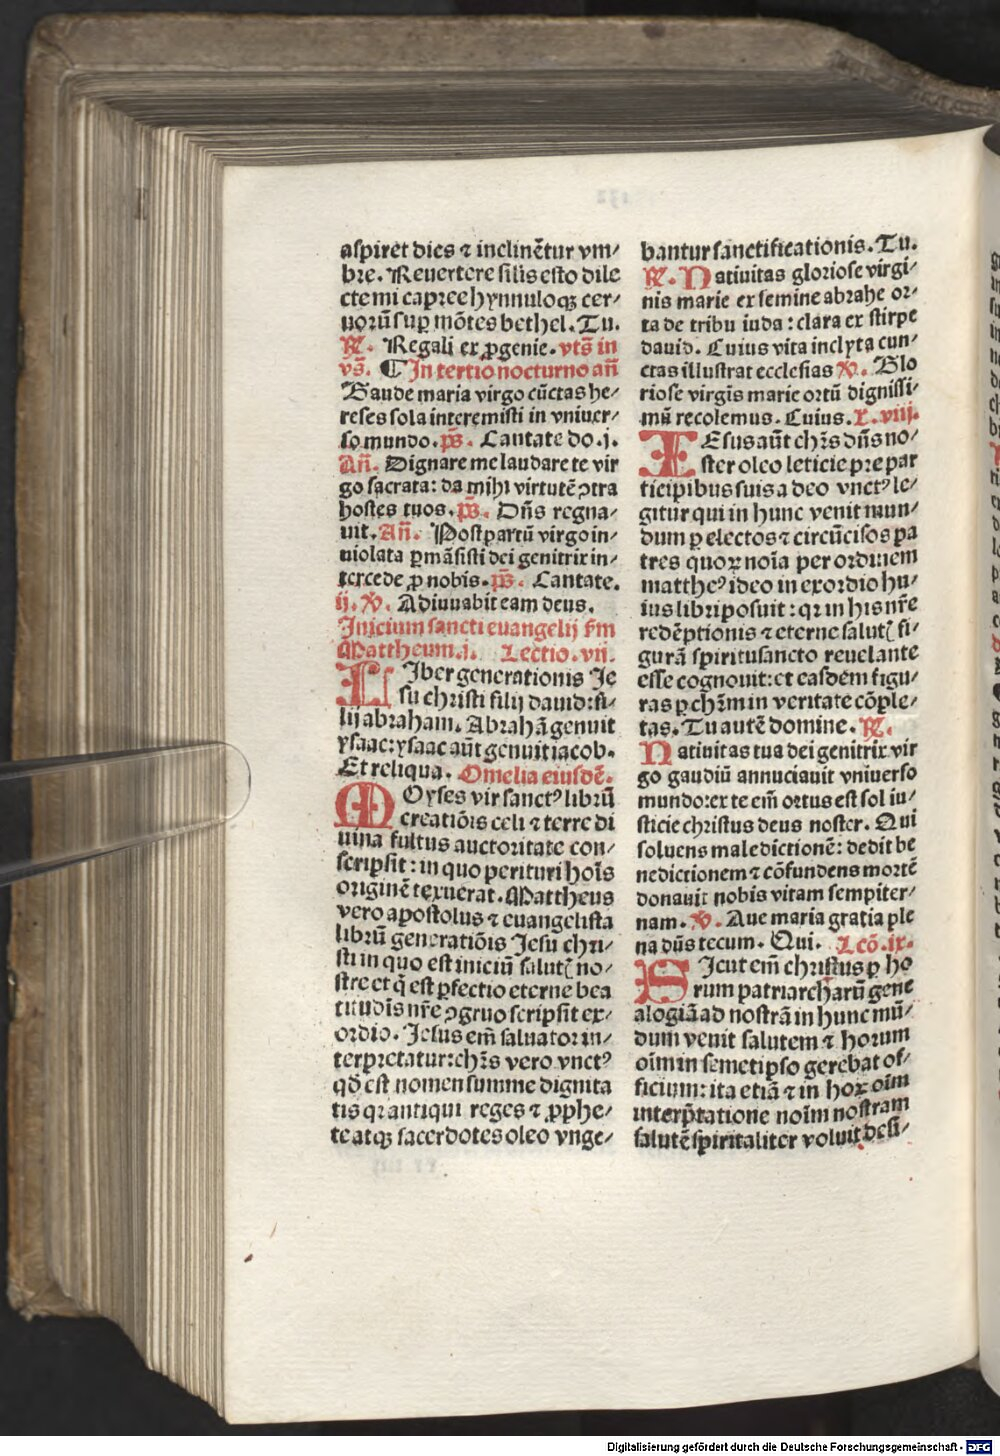 aſpiret dies ⁊ inclinētur vm⸗
bre. Reuertere ſilis eſto dile
cte mi capree hynnuloqꝫ cer⸗
uorū ſup mōtes bethel. Tu.
℟. Regali ex ꝓgenie. vtš in
vš. ¶ In tertio nocturno añ
Gaude maria virgo cūctas he⸗
reſes ſola interemiſti in vniuer⸗
ſo mundo. ps̄. Cantate do. j.
Añ. Dignare me laudare te vir
go ſacrata: da mihi virtutē ꝯtra
hoſtes tuos. ps̄. Dñs regna⸗
uit. Añ. Poſt partū virgo in⸗
uiolata ꝑmāſiſti dei genitrix in⸗
tercede ꝓ nobis. ps̄. Cantate.
ij. ℣. Adiuuabit eam deus.
Inicium ſancti euangelij ſm
Mattheum. j. Lectio. vii.
LIber generationis Je
ſu chriſti filij dauid: fi⸗
lij abraham. Abrahā genuit
yſaac: yſaac aūt genuit iacob.
Et reliqua. Omelia eiuſdē.
MOyſes vir ſanctꝰ librū
creatiōis celi ⁊ terre di
uina fultus auctoritate con⸗
ſcripſit: in quo perituri hoīs
originē texuerat. Mattheus
vero apoſtolus ⁊ euangeliſta
librū generatiōis Jeſu chri⸗
ſti in quo eſt iniciū ſalutꝭ no⸗
ſtre et q̇ eſt ꝑfectio eterne bea
titudīs nr̄e ꝯgruo ſcripſit ex⸗
ordio. Jeſus em̄ ſaluator in⸗
terpretatur: chr̄s vero vnctꝰ
qđ eſt nomen ſumme dignita
tis qꝛ antiqui reges ⁊ ꝓphe⸗
te atqꝫ ſacerdotes oleo vnge⸗
bantur ſanctificationis. Tu.
℟. Natiuitas glorioſe virgi⸗
nis marie ex ſemine abrahe or⸗
ta de tribu iuda: clara ex ſtirpe
dauid. Cuius vita inclyta cun⸗
ctas illuſtrat eccleſias ℣. Glo
rioſe virgīs marie ortū digniſſi⸗
mū recolemus. Cuius. L. viij.
IEſus aūt chr̄s dñs no⸗
ſter oleo leticie pre par
ticipibus ſuis a deo vnctꝰ le⸗
gitur qui in hunc venit mun⸗
dum ꝑ electos ⁊ circūciſos pa
tres quoꝝ noīa per ordinem
mattheꝰ ideo in exordio hu⸗
ius libri poſuit: qꝛ in his nr̄e
redēptionis ⁊ eterne ſalutꝭ fi⸗
gurā ſpirituſancto reuelante
eſſe cognouit: et eaſdem figu⸗
ras ꝑ chr̄m in veritate cōple⸗
tas. Tu autē domine. ℟.
Natiuitas tua dei genitrix vir
go gaudiū annuciauit vniuerſo
mundo: ex te em̄ ortus eſt ſol iu⸗
ſticie chriſtus deus noſter. Qui
ſoluens maledictionē: dedit be
nedictionem ⁊ cōfundens mortē
donauit nobis vitam ſempiter⸗
nam. ℣. Aue maria gratia ple
na dn̄s tecum. Qui. Lcō. ix.
SIcut em̄ chriſtus ꝑ ho
rum patriarcharū gene
alogiā ad noſtrā in hunc mū⸗
dum venit ſalutem ⁊ horum
oīm in ſemetipſo gerebat of⸗
ficium: ita etiā ⁊ in hoꝝ oīm
interp̄tatione noīm noſtram
ſalutē ſpiritaliter voluit deſi⸗
Digitalisierung gefördert durch die Deutsche Forschungsgemeinschaft - DFG